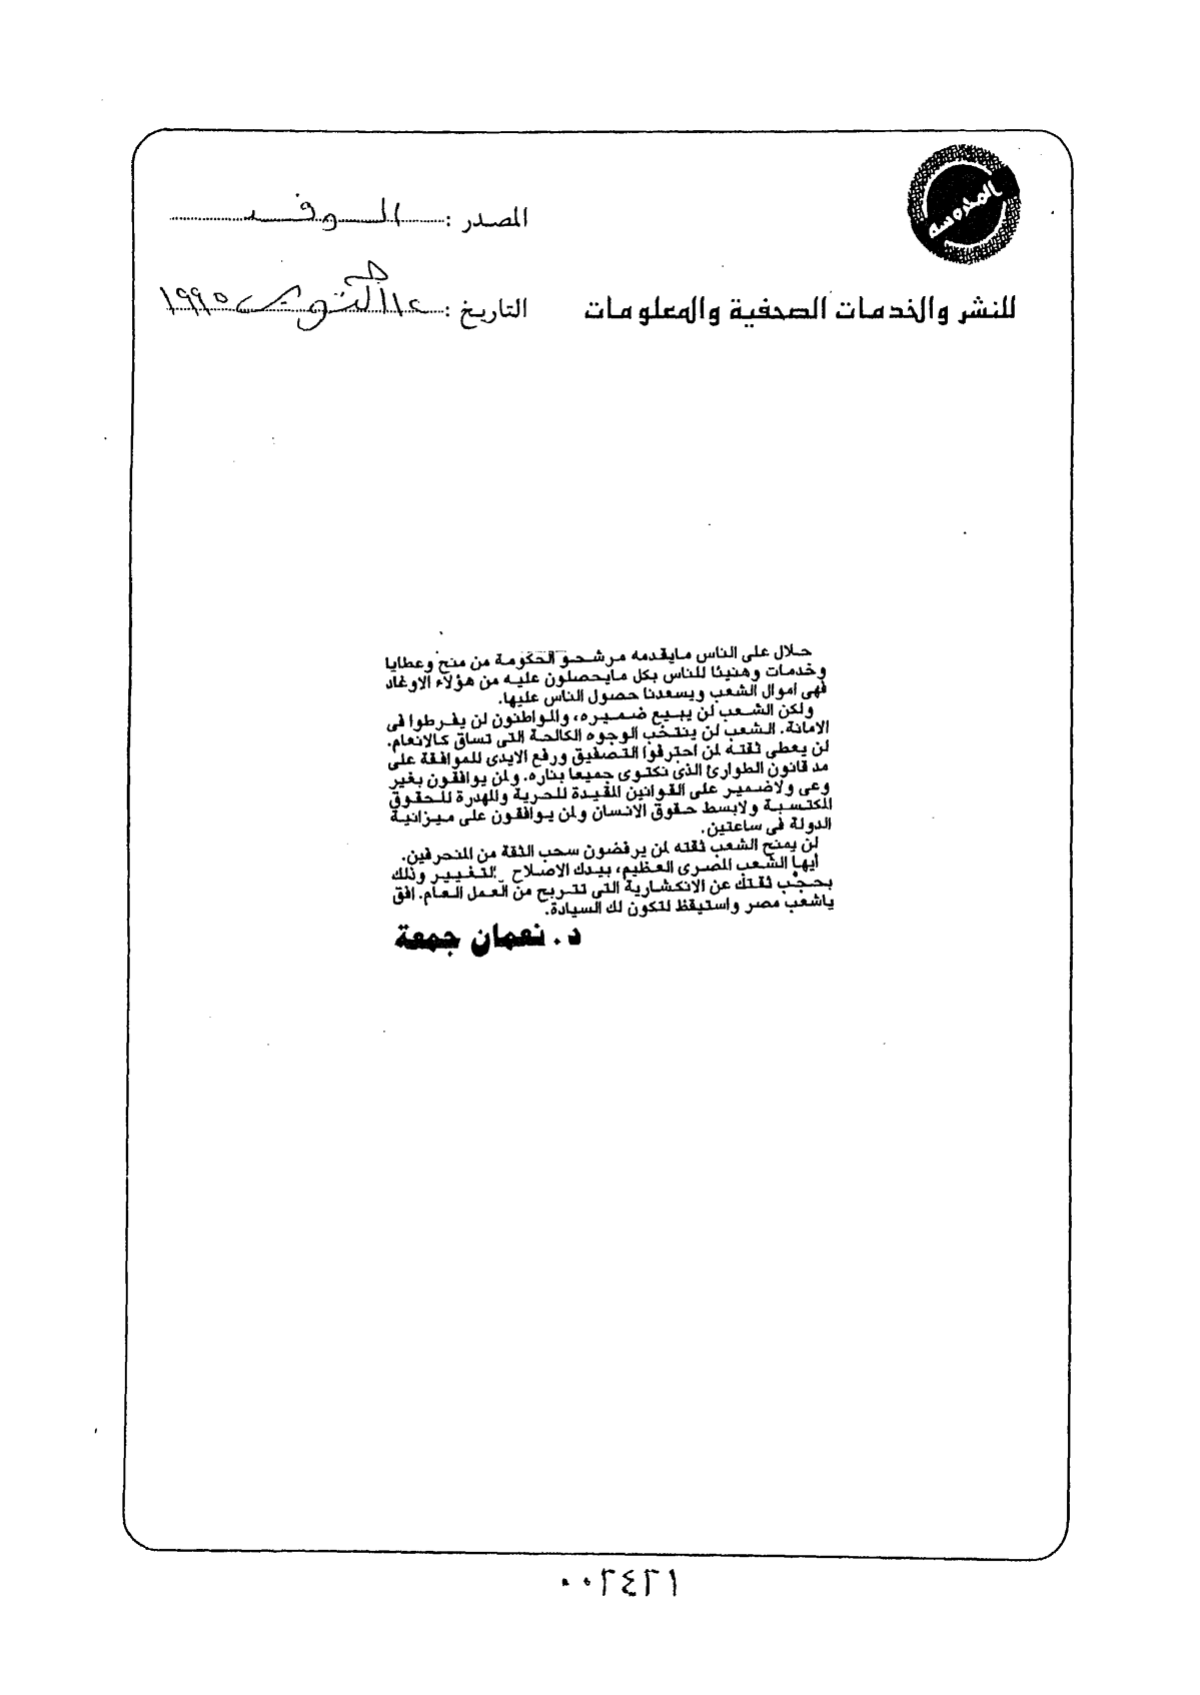 المدوسه
المصدر : الوفد
للنشر والخدمات الصحفية والمعلومات
التاريخ : أكتوبر ١٩٩٥
حلال على الناس مايقدمه مرشحو الحكومة من منح وعطايا
وخدمات وهنيئا للناس بكل مايحصلون عليه من هؤلاء الاوغاد
فهى اموال الشعب ويسعدنا حصول الناس عليها.
ولكن الشعب لن يبيع ضميره، والمواطنون لن يفرطوا فى
الامانة. الشعب لن ينتخب الوجوه الكالحة التى تساق كالانعام.
لن يعطى ثقته لمن احترفوا التصفيق ورفع الايدى للموافقة على
مد قانون الطوارئ الذى نكتوى جميعا بناره. ولمن يوافقون بغير
وعى ولاضمير على القوانين المقيدة للحرية والمهدرة للحقوق
المكتسبة ولابسط حقوق الانسان ولمن يوافقون على ميزانية
الدولة فى ساعتين.
لن يمنح الشعب ثقته لمن يرفضون سحب الثقة من المنحرفين.
أيها الشعب المصرى العظيم، بيدك الاصلاح لتغيير وذلك
بحجب ثقتك عن الانكشارية التى تتربح من العمل العام. افق
ياشعب مصر واستيقظ لتكون لك السيادة.
د. نعمان جمعة
٠٠٢٤٢١